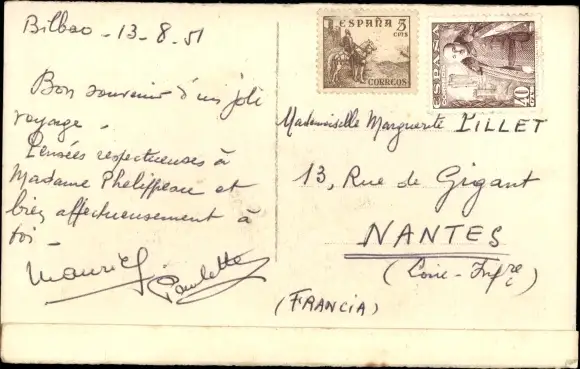 Bilbao - 13-8.51
Bon souvenir d'un joli
voyage.
Pensées respectueuses à
Madame Phelippeau et
bien affectueusement à
toi -
Maurice
Paulette
ESPAÑA 5
CTS
CORREOS
ESPAÑA
40
CTS
Mademoiselle Marguerite PILLET
13, Rue de Gigant
NANTES
(Loire-Infre)
(FRANCIA)